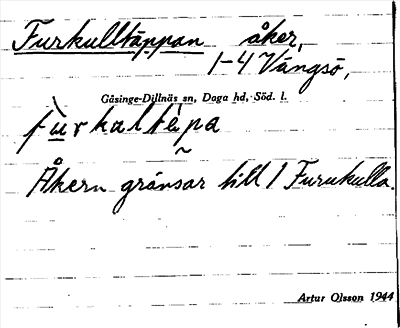 Furkulltäppan åker,
1-4 Vängsö,
Gåsinge-Dillnäs sn, Daga hd, Söd. l.
fùrkaltèpa
Åkern gränsar till 1 Furukulla.
Artur Olsson 1944